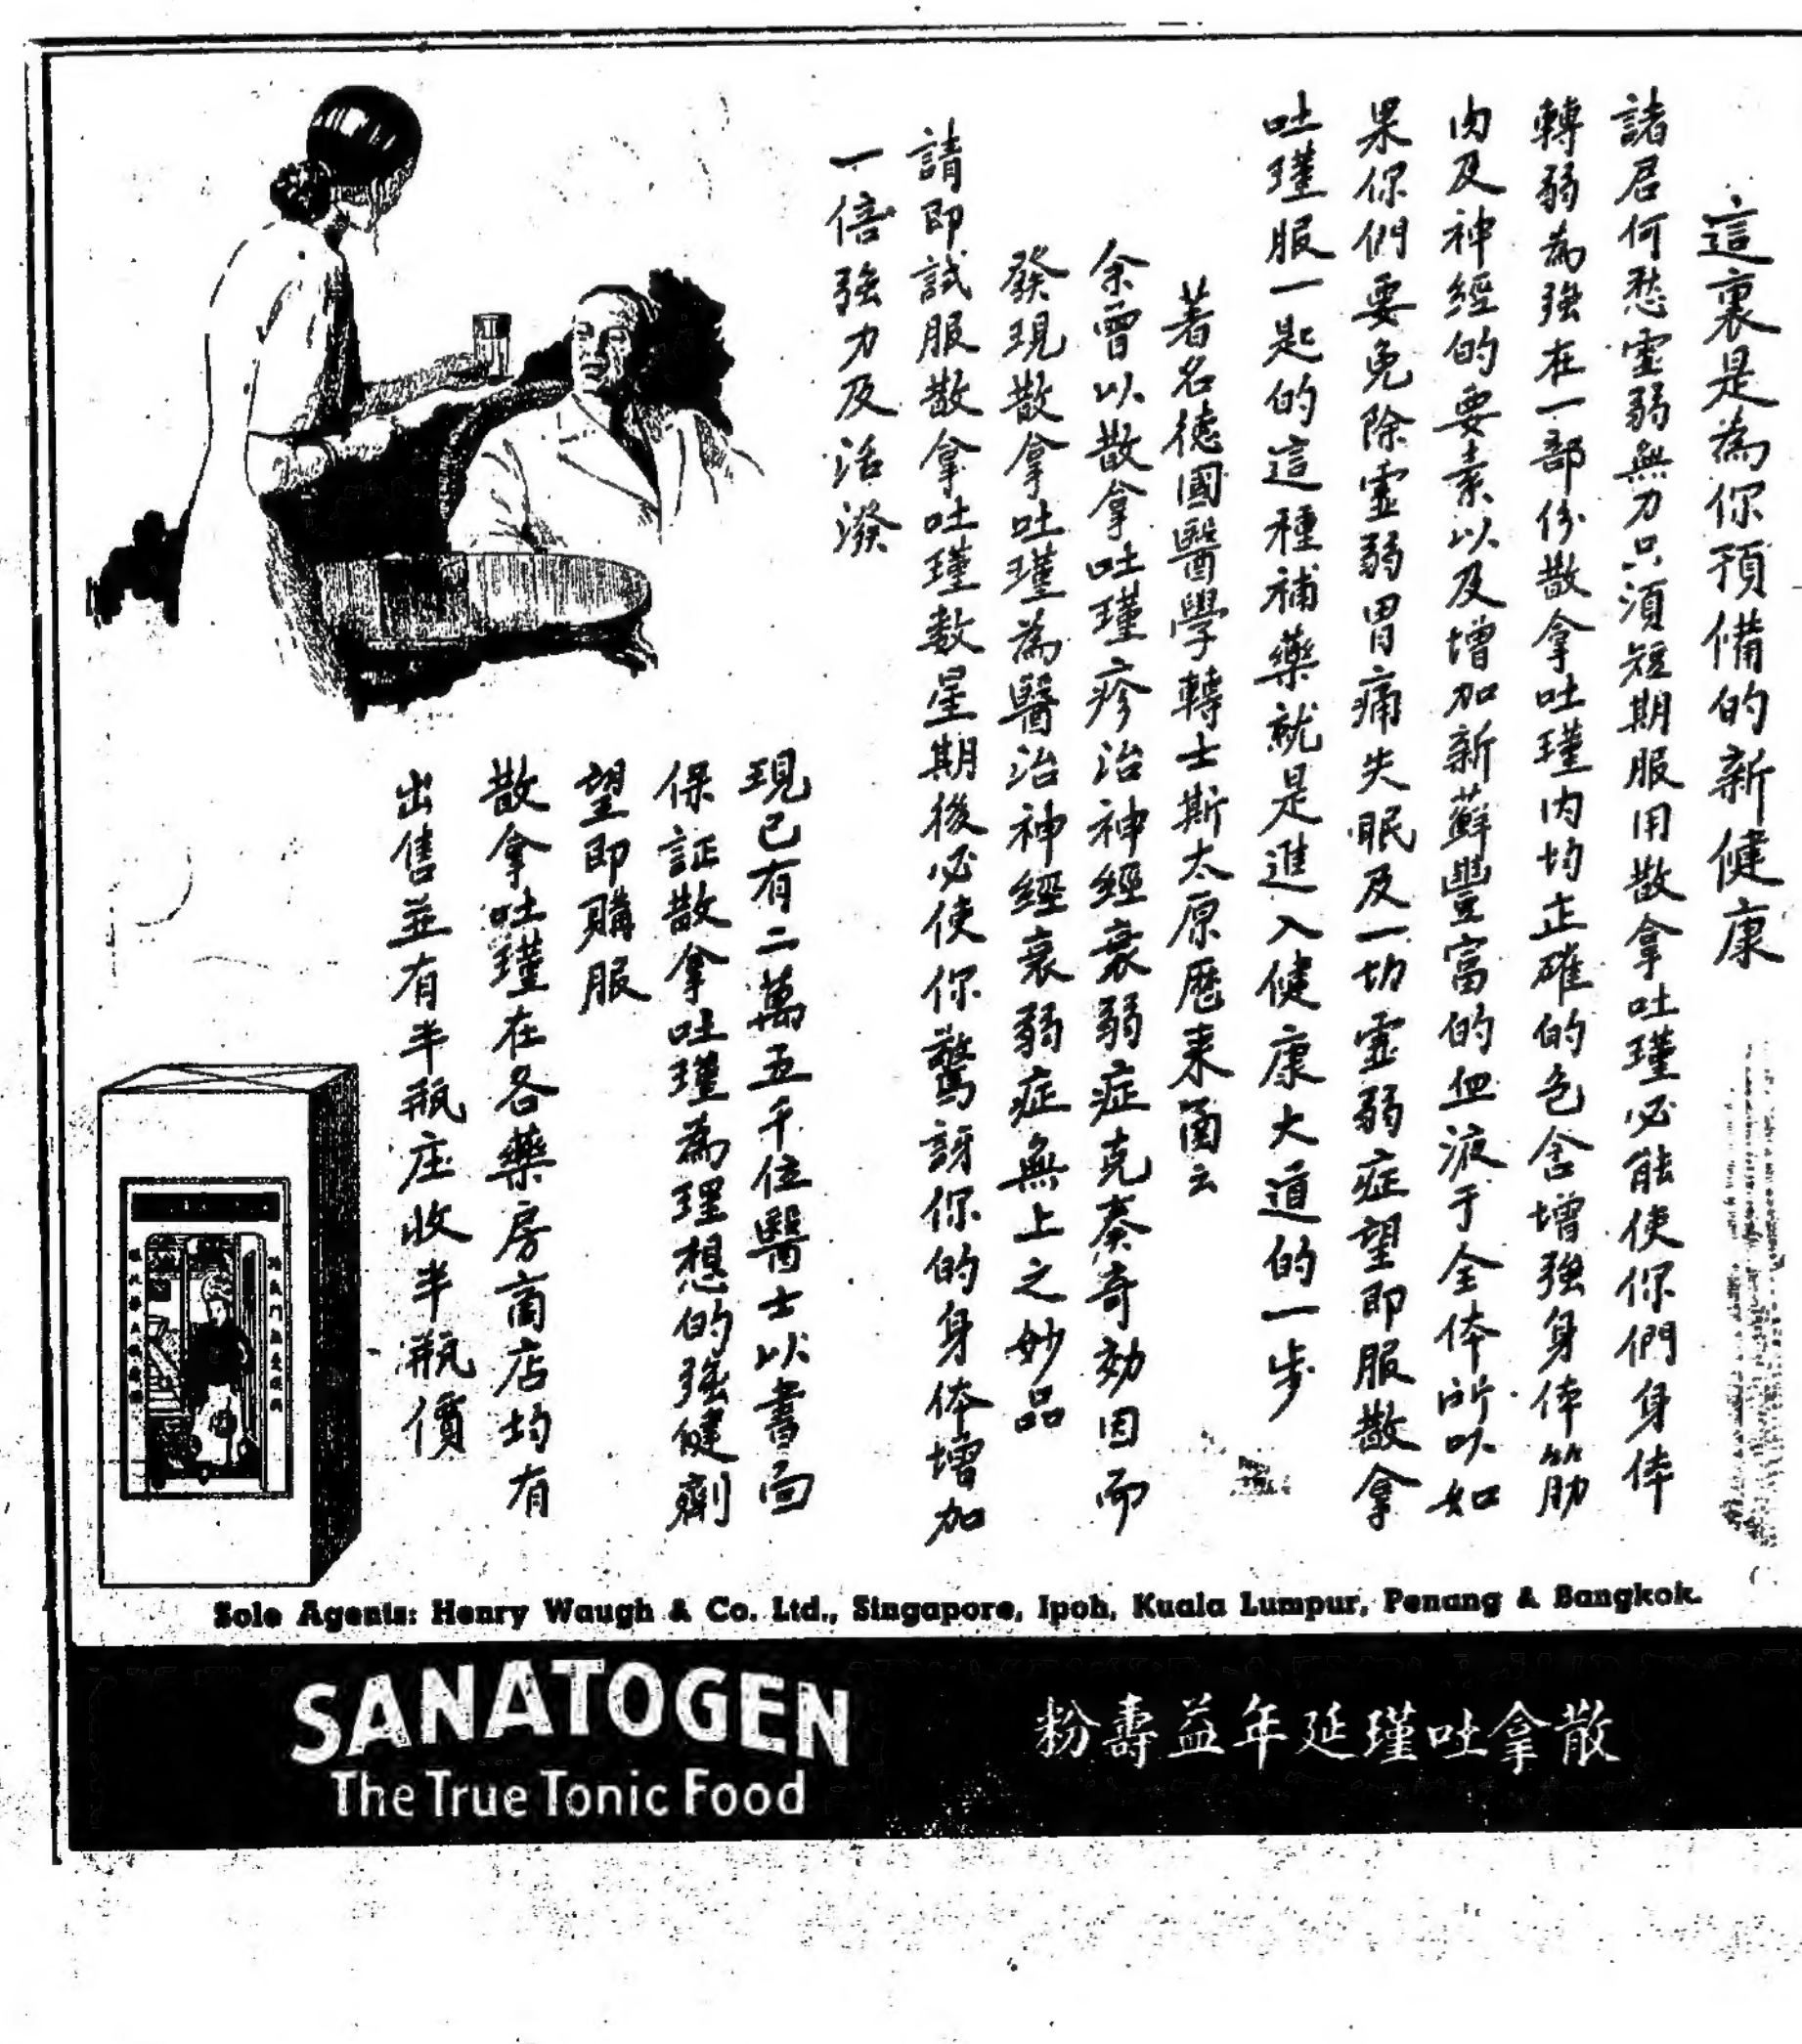 這裏是為你預備的新健康
諸君何愁虛弱無力只須短期服用散拿吐瑾必能使你們身体
轉弱為強在一部份散拿吐瑾内均正確的包含增強身体筋
肉及神經的要素以及增加新蘇豐富的血液于全体所以如
果你們要免除虛弱胃痛失眠及一切虛弱症望即服散拿
吐瑾服一起的這種補藥就是進入健康大道的一步
著名德國醫學轉士斯太原歷來函云
余曾以散拿吐瑾疹治神經衰弱症克奏奇効因而
發現散拿吐瑾為醫治神經衰弱症無上之妙品
請即試服散拿吐瑾数星期後必使你驚訝你的身体增加
一倍強力及活潑
現已有二萬五千位醫士以書面
保証散拿吐瑾為理想的強健劑
望即購服
散拿吐瑾在各藥房商店均有
出售並有半瓶庄收半瓶價
Sole Agents: Henry Waugh & Co. Ltd., Singapore, Ipoh, Kuala Lumpur, Penang & Bangkok.
SANATOGEN
The True Tonic Food
粉壽益年延瑾吐拿散